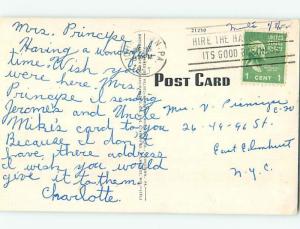 Mrs. Principe
Having a wonderful
time. Wish you
were here. Mrs.
Principe I sending
Jeromes and Uncle
Mikes card to you
Because I don't
have there address
I wish you would
give it to them.
Charlotte.
PA.
21250
HIRE THE HA
ITS GOOD
1 CENT 1
POST CARD
Mrs. V. Principe
26-19-96 St.
East Elmhurst
N.Y.C.